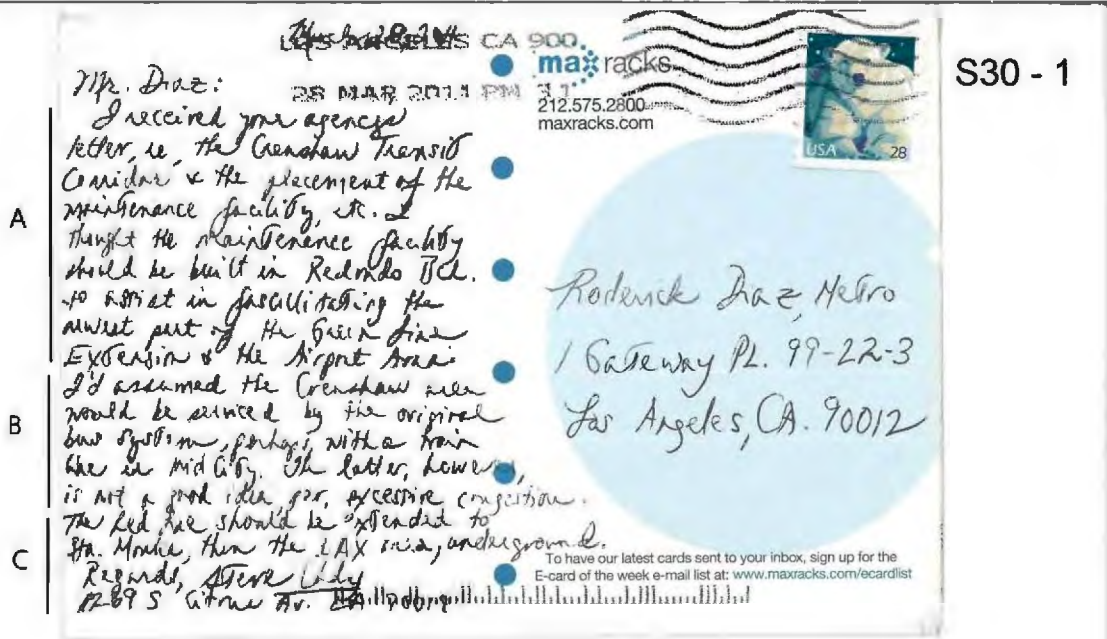 S30 - 1
LOS ANGELES CA 900
28 MAR 2011 PM
maxracks
212.575.2800
maxracks.com
USA 28
Mr. Diaz:
I received your agency's
letter, re, the Crenshaw Transit
Corridor & the placement of the
maintenance facility, etc. I
thought the maintenance facility
should be built in Redondo Bch.
to assist in fascilitating the
newest part of the Green Line
Extension & the Airport Area.
I'd assumed the Crenshaw area
would be serviced by the original
bus system, perhaps, with a train
line in Mid City. The latter, however,
is not a good idea, for, excessive congestion.
The Red line should be extended to
Sta. Monica, then the LAX area, underground.
Regards, Steve
S Citrus Av. LA
A
B
C
Roderick Diaz, Metro
1 Gateway PL. 99-22-3
Los Angeles, CA. 90012
To have our latest cards sent to your inbox, sign up for the
E-card of the week e-mail list at: www.maxracks.com/ecardlist